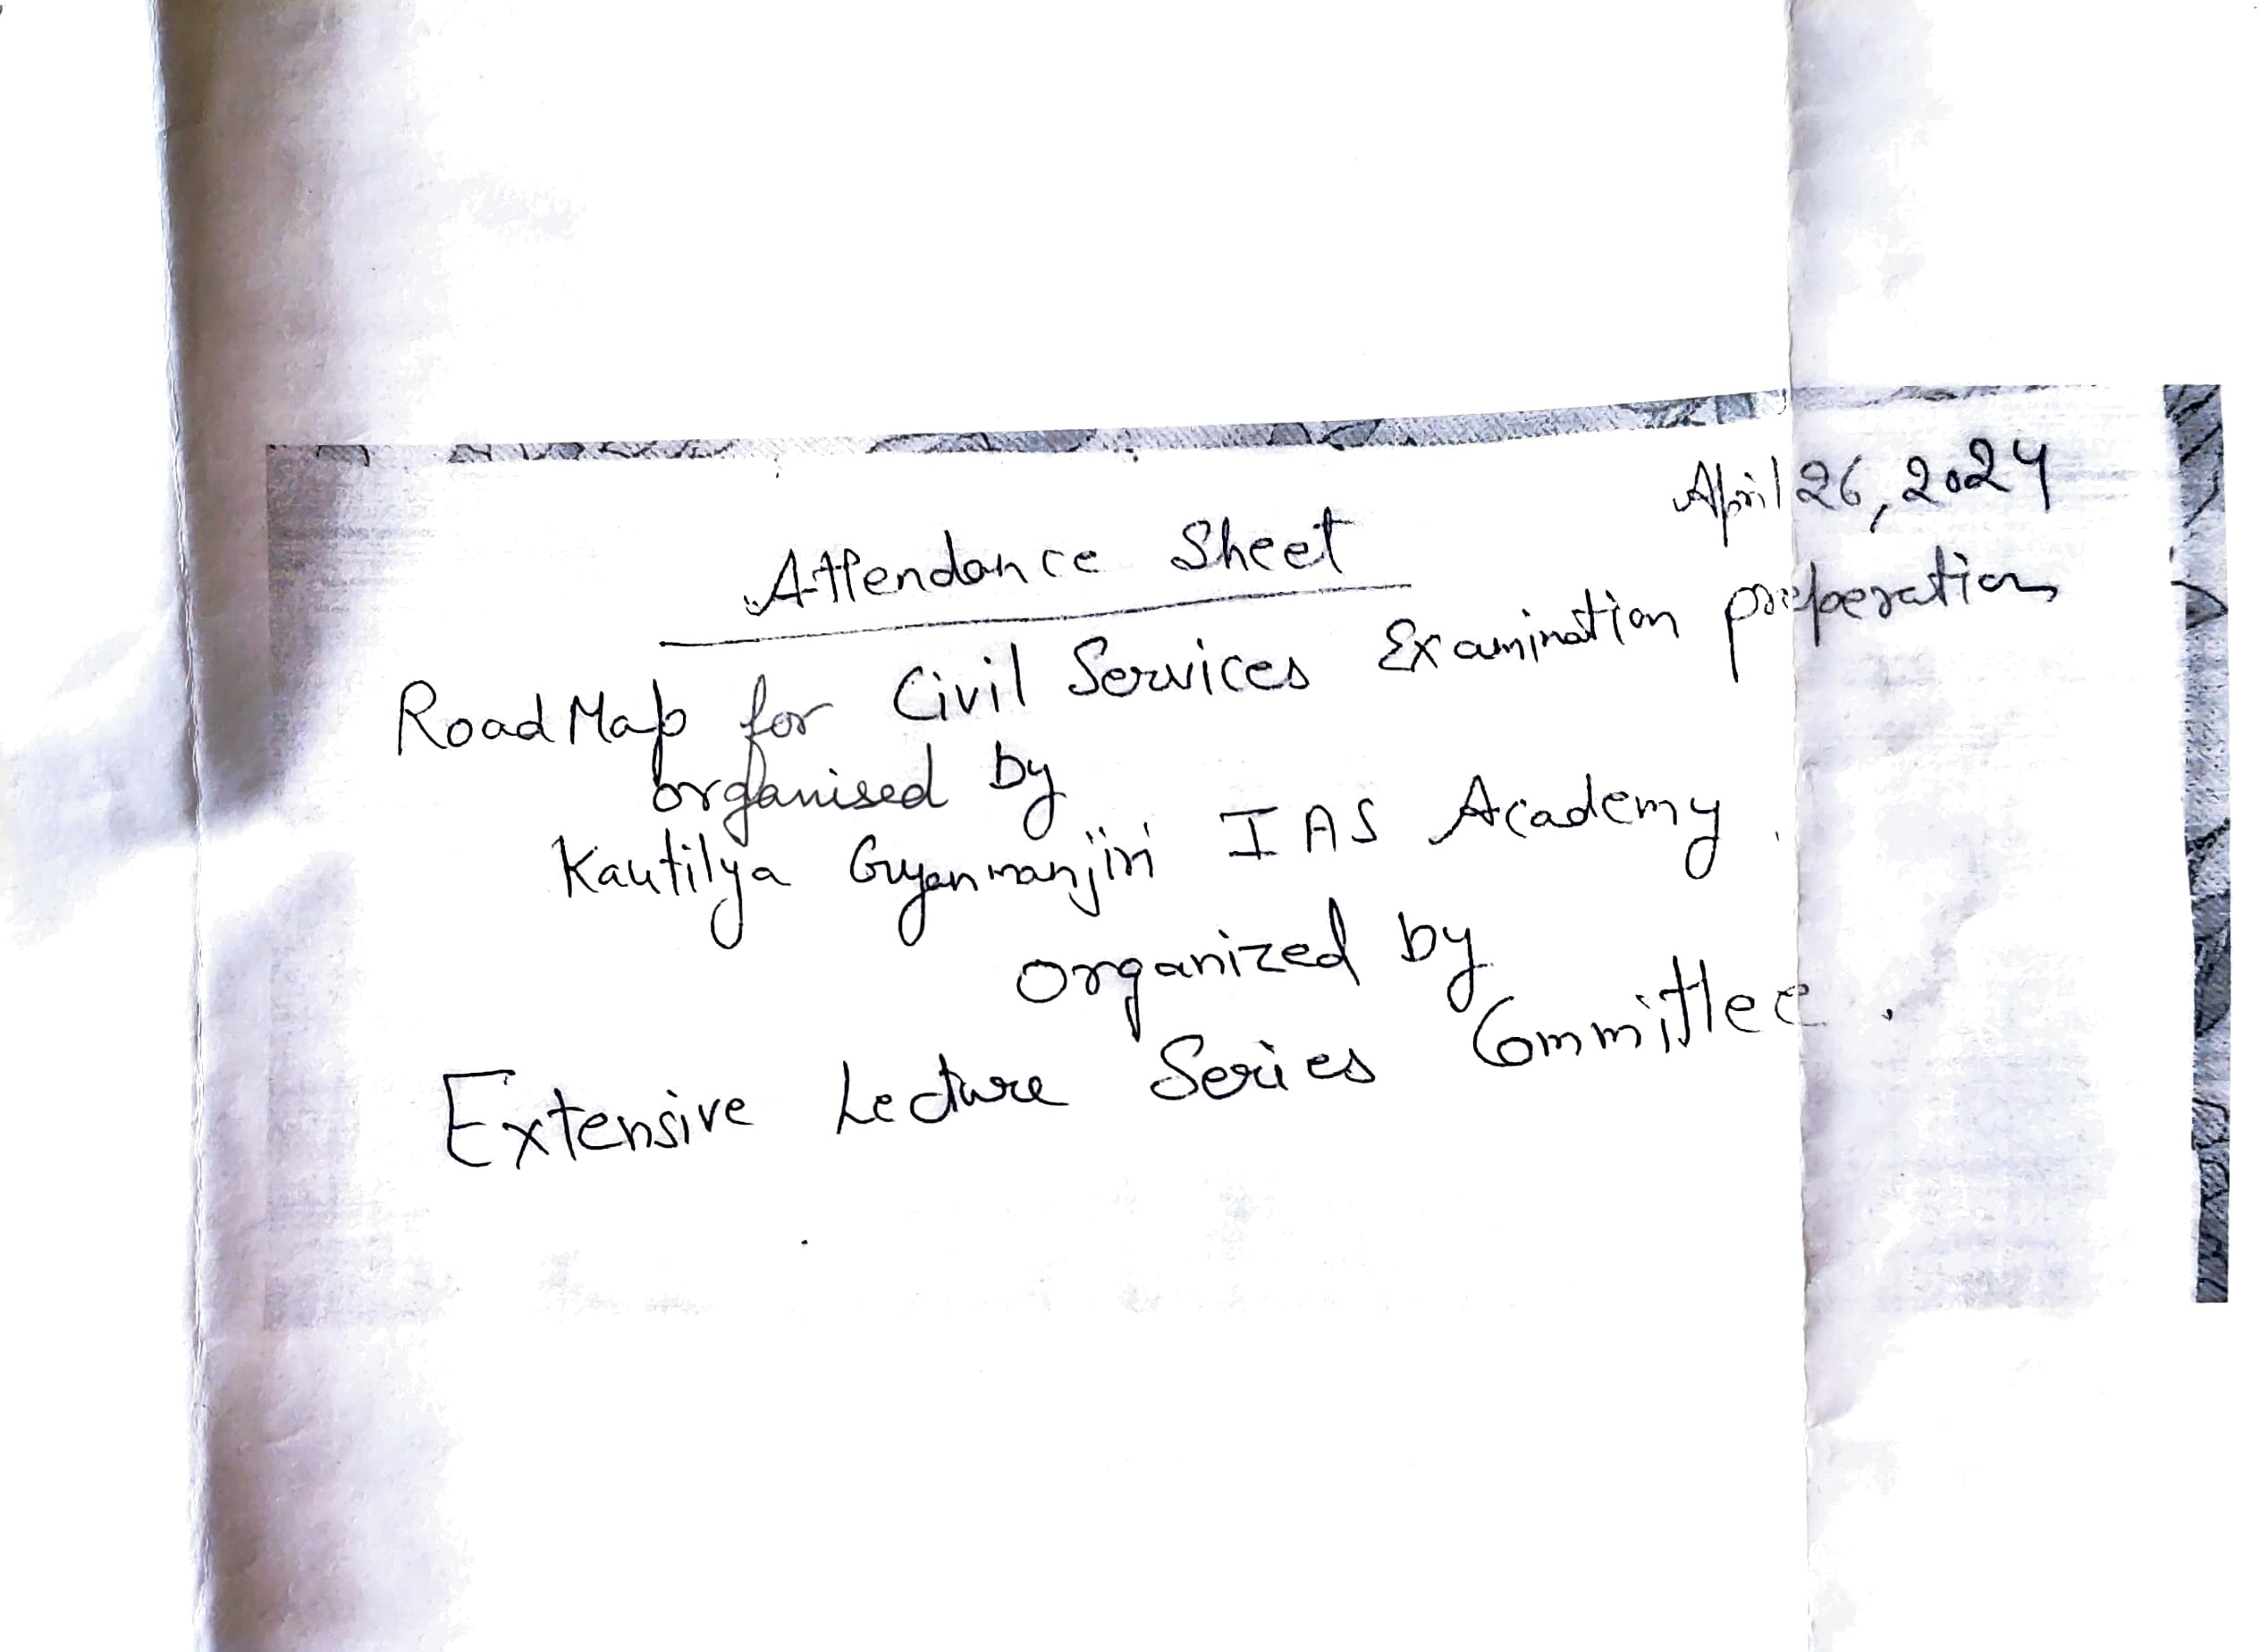 April 26, 2024
Attendance Sheet
Road Map for Civil Services Examination preperation
organised by
Kautilya Gyanmanjiri IAS Academy.
organized by
Extensive Lecture Series Committee.